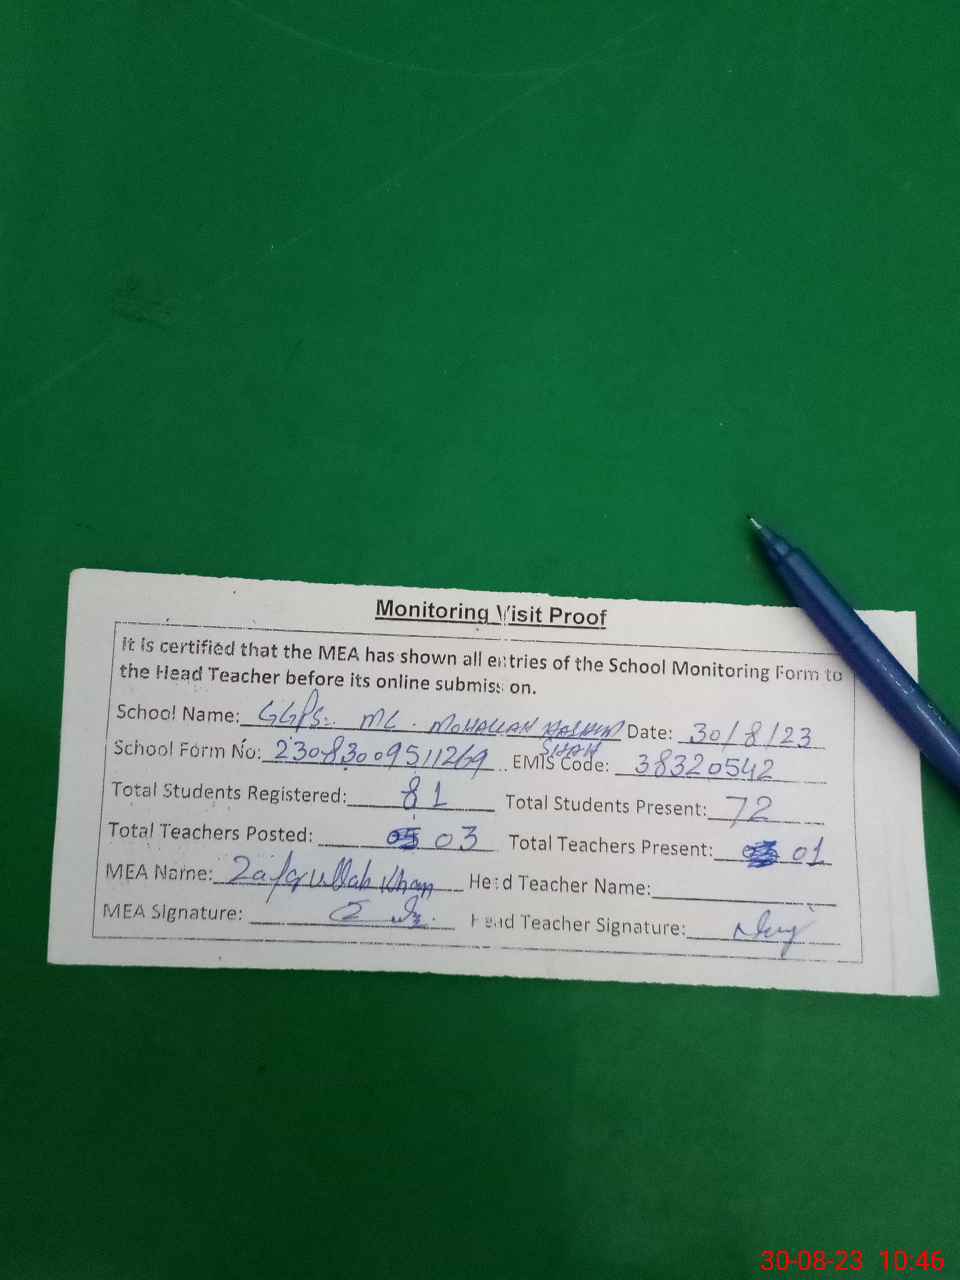 Monitoring Visit Proof
It is certified that the MEA has shown all entries of the School Monitoring Form to
the Head Teacher before its online submission.
School Name: GGPS. MC. MOHALLAH HASHIM SHAH Date: 30/8/23
School Form No: 23083009511269 EMIS Code: 38320542
Total Students Registered: 81 Total Students Present: 72
Total Teachers Posted: 03 Total Teachers Present: 01
MEA Name: Zafarullah Khan Head Teacher Name:
MEA Signature: Head Teacher Signature:
30-08-23 10:46